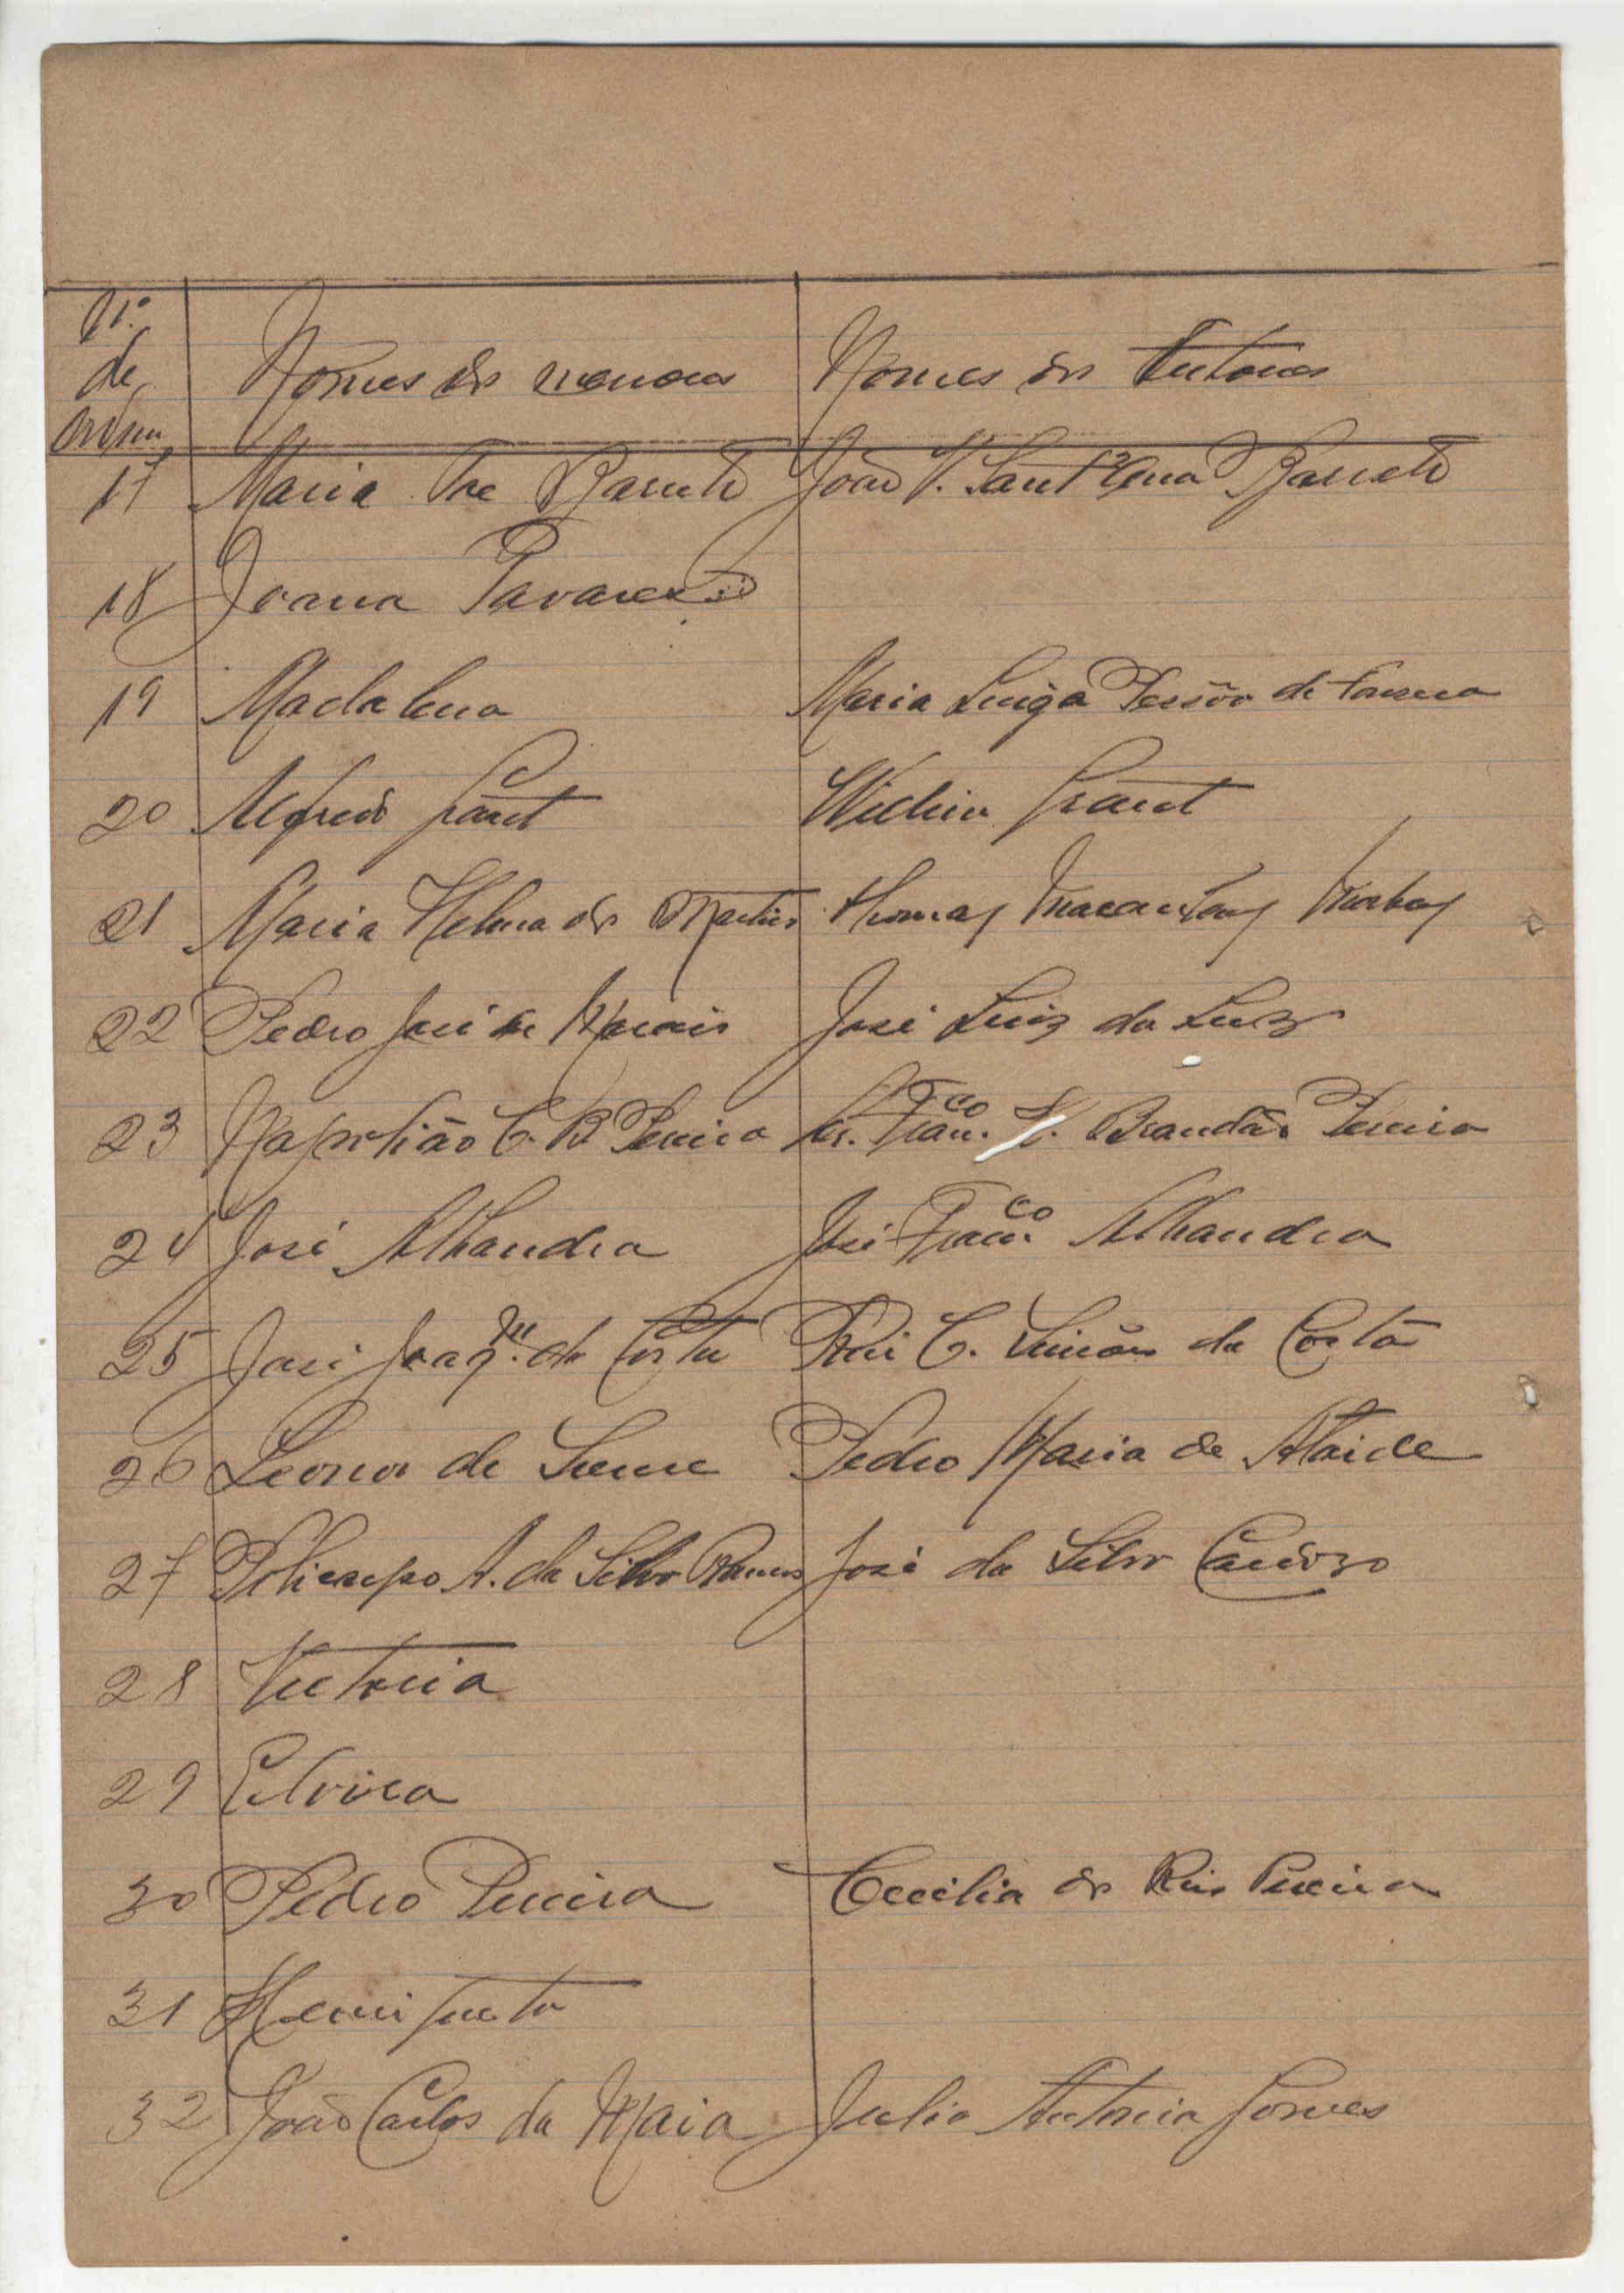 N.º de ordem Nomes dos menores Nomes dos Tutores
17 Maria Barreto João V. Sant'Anna Barreto
18 Joana Tavares
19 Madalena Maria Luiza de
20 Alfredo Grant William Grant
21 Maria Helena dos Martires Thomas
22 Pedro José de Moraes José Luiz da Luz
23 Napoleão C. B. Pereira Fran.co Brandão Pereira
24 José Alhandra José Fran.co Alhandra
25 José Joaq.m da Costa C. Simões da Costa
26 Leonor de Pedro Maria de Ataide
27 Policarpo A. da Silva Ramos José da Silva Cardozo
28 Victoria
29 Elvira
30 Pedro Pereira Cecilia dos Reis Pereira
31 Henriqueta
32 João Carlos da Maia Julia Antonia Gomes